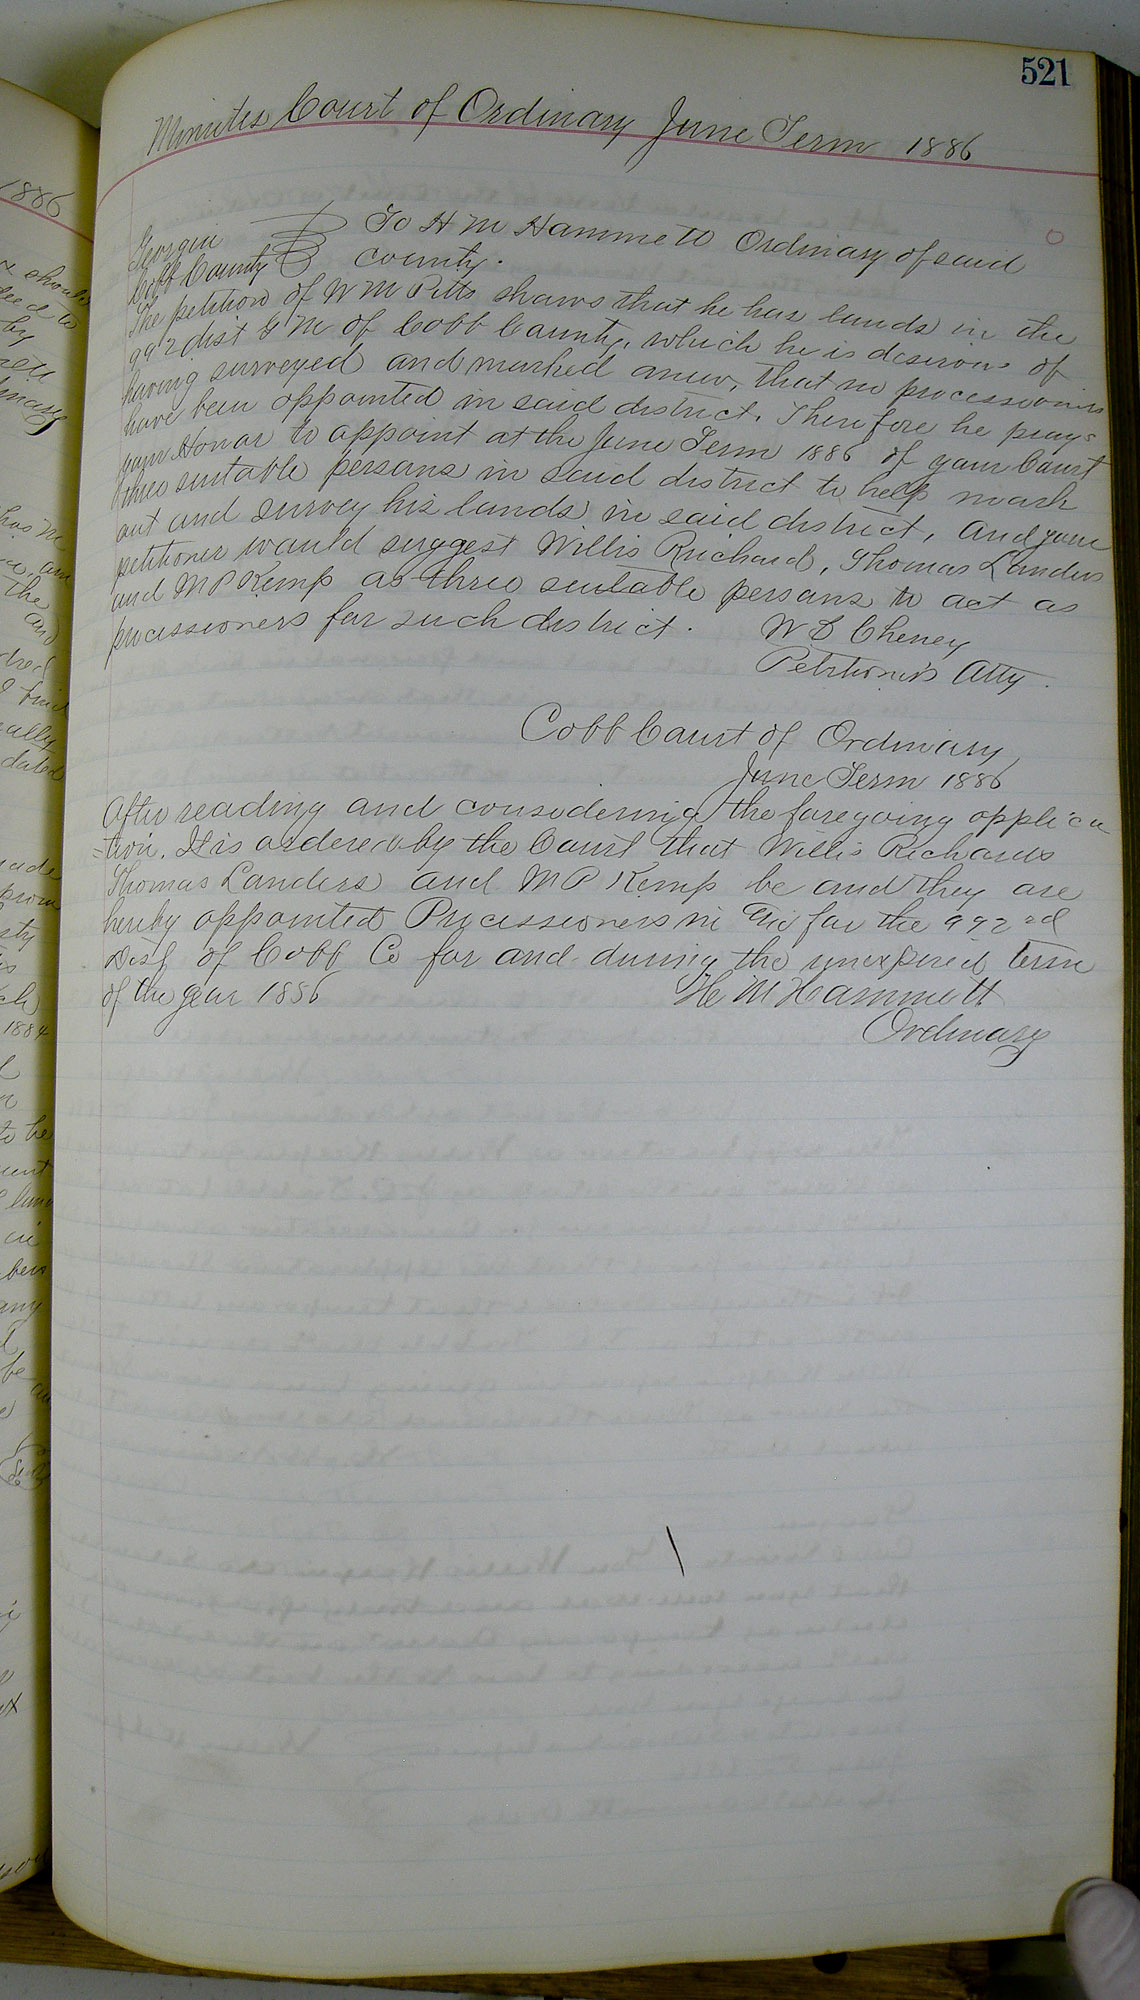 521
Minutes Court of Ordinary June Term 1886
Georgia To H M Hammett Ordinary of said
Cobb County county.
The petition of W M Pitts shows that he has lands in the
992 dist G M of Cobb County, which he is desirous of
having surveyed and marked anew, that no processioners
have been appointed in said district. Therefore he prays
your Honor to appoint at the June Term 1886 of your Court
three suitable persons in said district to help mark
out and survey his lands in said district, and your
petitioner would suggest Willis Richard, Thomas Landers
and M P Kemp as three suitable persons to act as
processioners for such district. W D Cheney
Petitioner's Atty.
Cobb Court of Ordinary
June Term 1886
After reading and considering the foregoing applica
=tion. It is ordered by the Court that Willis Richards
Thomas Landers and M P Kemp be and they are
hereby appointed Processioners in and for the 992nd
Dist of Cobb Co for and during the unexpired term
of the year 1886 H M Hammett
Ordinary